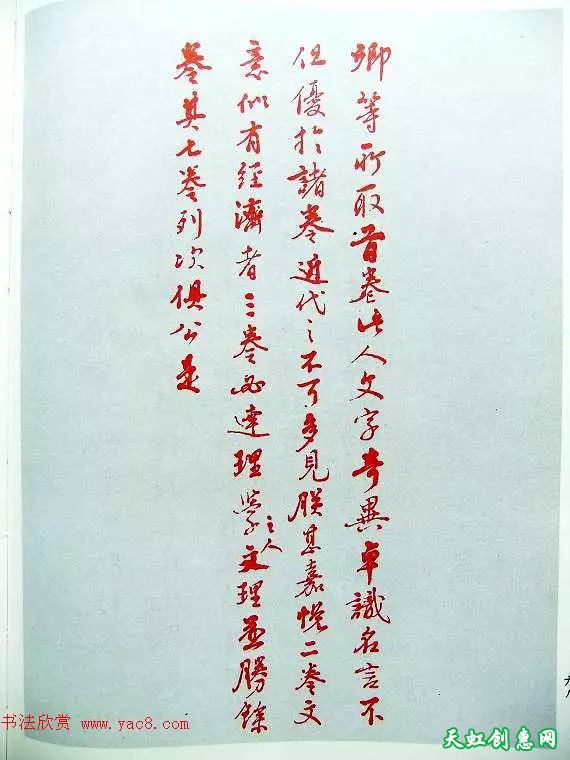 卿等所取首卷此人文字奇異卓識名言不
但優於諸卷近代之不可多見朕甚嘉悅二卷文
意似有經濟者三卷必達理學之人文理並勝餘
卷其七卷列次俱公是
书法欣赏 www.yac8.com
天虹创惠网